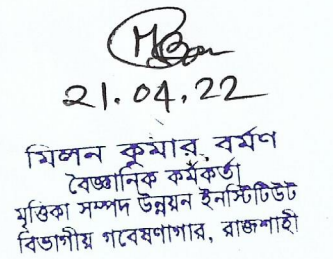 21.04.22
মিলন কুমার বর্মণ
বৈজ্ঞানিক কর্মকর্তা
মৃত্তিকা সম্পদ উন্নয়ন ইনস্টিটিউট
বিভাগীয় গবেষণাগার, রাজশাহী